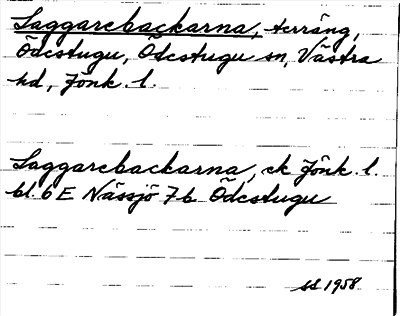 Laggarebackarna, terräng,
Ödestugu, Ödestugu sn, Västra
hd, Jönk. l.
Laggarebackarna, ek Jönk. l.
bl. 6 E Nässjö 7b Ödestugu
SS 1958